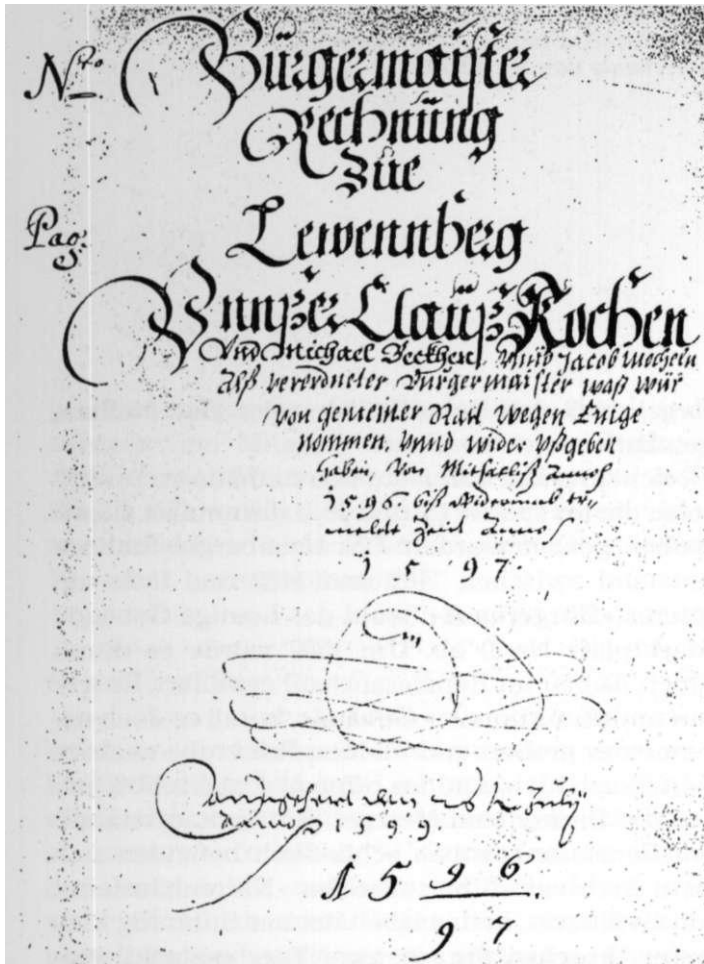 No
Bürgermaister
Rechnung
Zue
Pag:
Lewennberg
Vnnßer Clauß Kochen
Vnd Michael Beckhen, Vnnd Jacob Wecheln
Alß verordneter Burgermaister waß wür
von gemeiner Statt wegen Einge
nommen, Vnnd wider vßgeben
haben, Von Michaeliß Anno
1596 biß widerumb er
melte Zeit Anno
1597
Angehört den
Anno 1597
1596
97